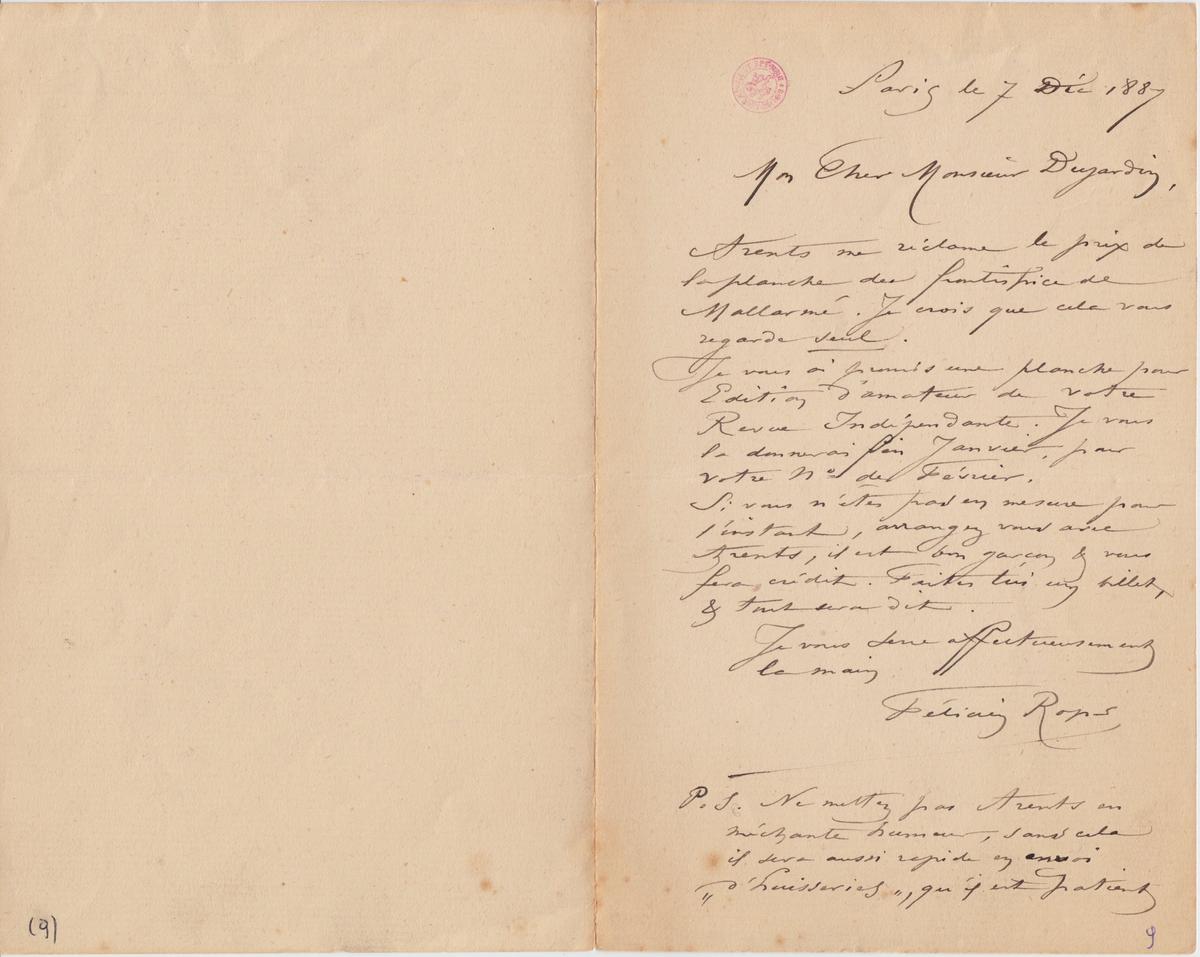 Paris le 7 Déc 1887
Mon Cher Monsieur Dujardin,
Arents me réclame le prix de
la planche du frontispice de
Mallarmé. Je crois que cela vous
regarde seul.
Je vous ai promis une planche pour
Edition d'amateur de votre
Revue Indépendante. Je vous
la donnerai fin Janvier, pour
votre No de Février.
Si vous n'êtes pas en mesure pour
l'instant, arrangez vous avec
Arents, il est bon garçon & vous
fera crédit. Faites lui un billet,
& tout sera dit.
Je vous serre affectueusement
la main
Félicien Rops
P.S. Ne mettez pas Arents en
méchante humeur, sans cela
il sera aussi rapide en envoi
"d'huisseries", qu'il est patient
(9)
9